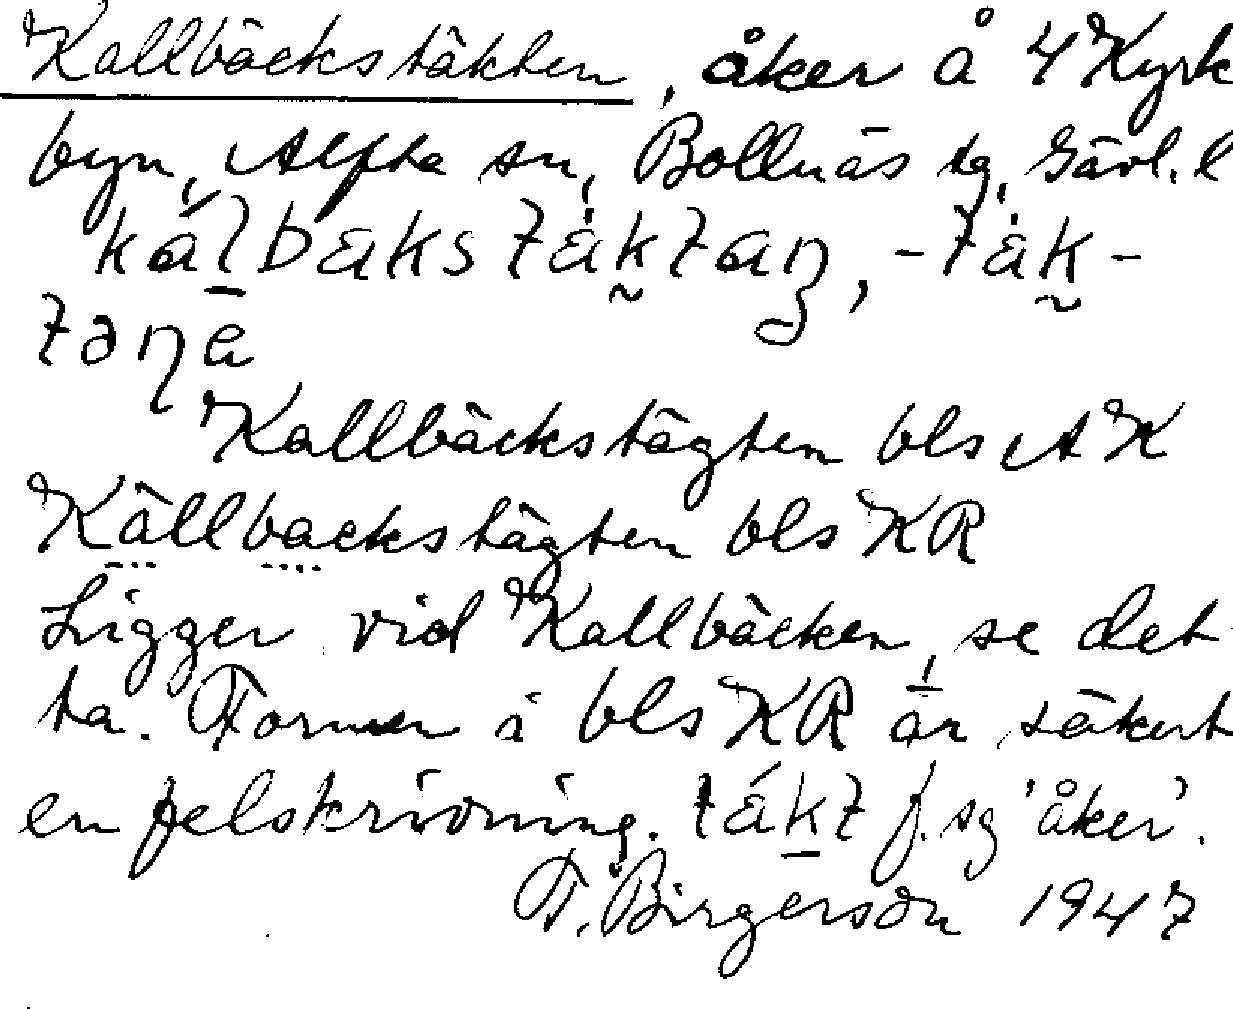 Kallbäckstäkten, åker å 4 Kyrk
byn, Alfta sn, Bollnäs tg, Gävl. l
kálbaksták̰taŋ, -ták̰-
təŋa
Kallbäckstägten bls AK
Källbackstägten bls KR
Ligger vid Kallbäcken, se det
ta. Formen i bls KR är säkert
en felskrivning. tákt f. sg 'åker'.
T. Birgerson 1947